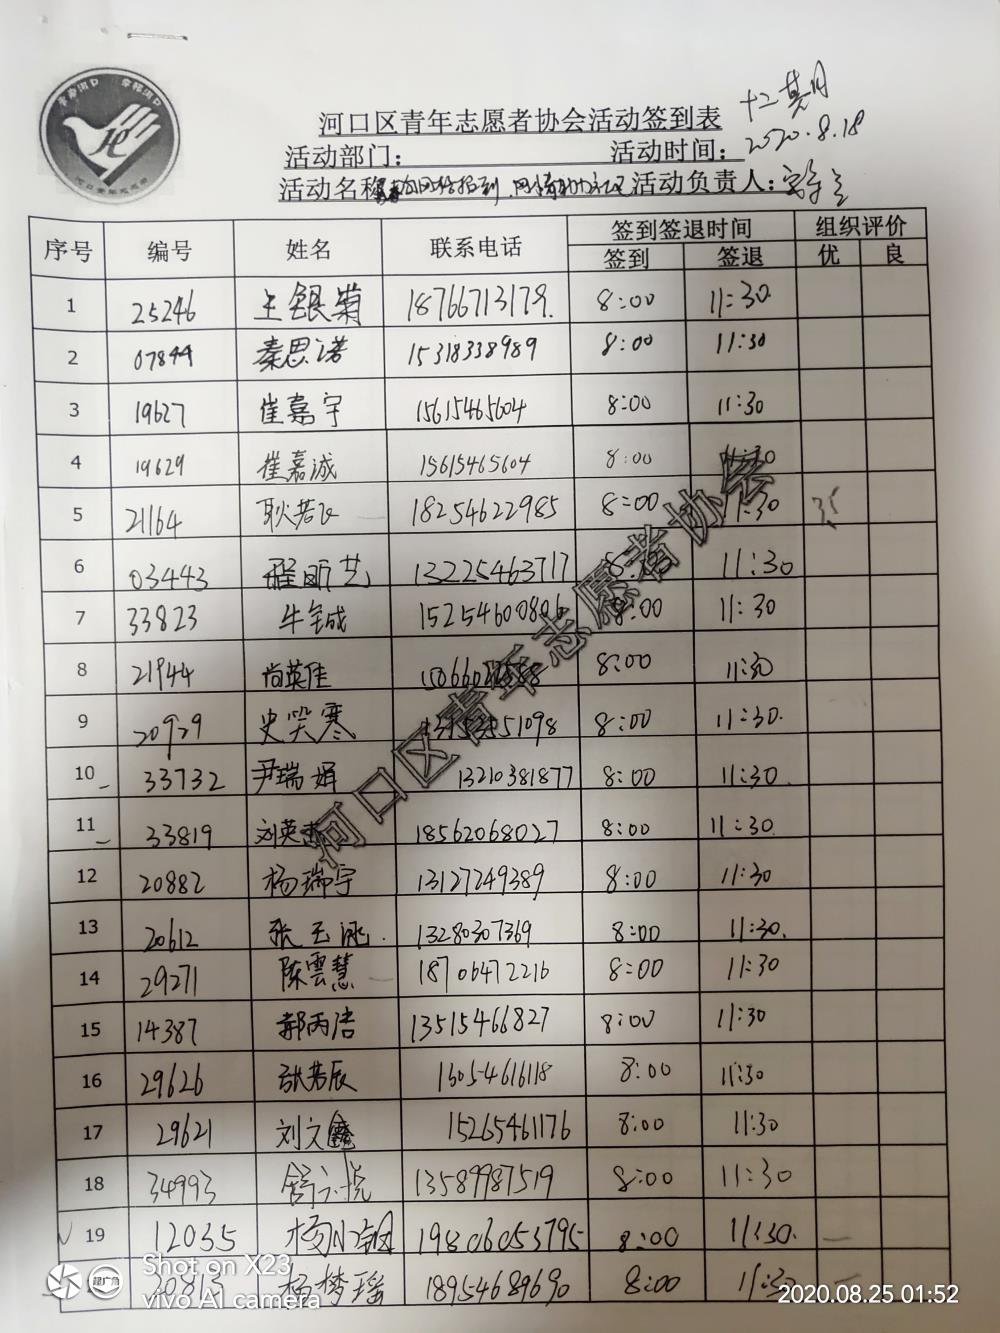 十二
河口区青年志愿者协会活动签到表
活动部门: 活动时间: 2020.8.18
活动名称 活动负责人:
序号 编号 姓名 联系电话 签到签退时间 组织评价
签到 签退 优 良
1 25246 王银菊 18766713179. 8:00 11:30
2 07844 秦思诺 15318338989 8:00 11:30
3 19627 崔嘉宇 15615465604 8:00 11:30
4 19629 崔嘉诚 15615465604 8:00 11:30
5 21164 耿若 18254622985 8:00 11:30
6 03443 程昕艺 13225463717 8:00 11:30
7 33823 牛铖 15254600806 8:00 11:30
8 21944 尚英佳 8:00 11:30
9 20929 史笑寒 8:00 11:30.
10 33732 尹瑞娟 13210381877 8:00 11:30
11 33819 刘英 18562068027 8:00 11:30
12 20882 杨瑞宇 13127249389 8:00 11:30
13 20612 张玉 13280307369 8:00 11:30.
14 29271 陈雲慧 18706472216 8:00 11:30
15 14387 郝丙洁 13515466827 8:00 11:30
16 29626 张若辰 16054616118 8:00 11:30
17 29621 刘文鑫 15265461176 8:00 11:30
18 34993 舒 13589987519 8:00 11:30
19 12035 杨 19806053795 8:00 11:30.
30813 杨梦瑶 18954689690 8:00 11:30
河口区青年志愿者协会
Shot on X23
vivo AI camera
超广角
2020.08.25 01:52